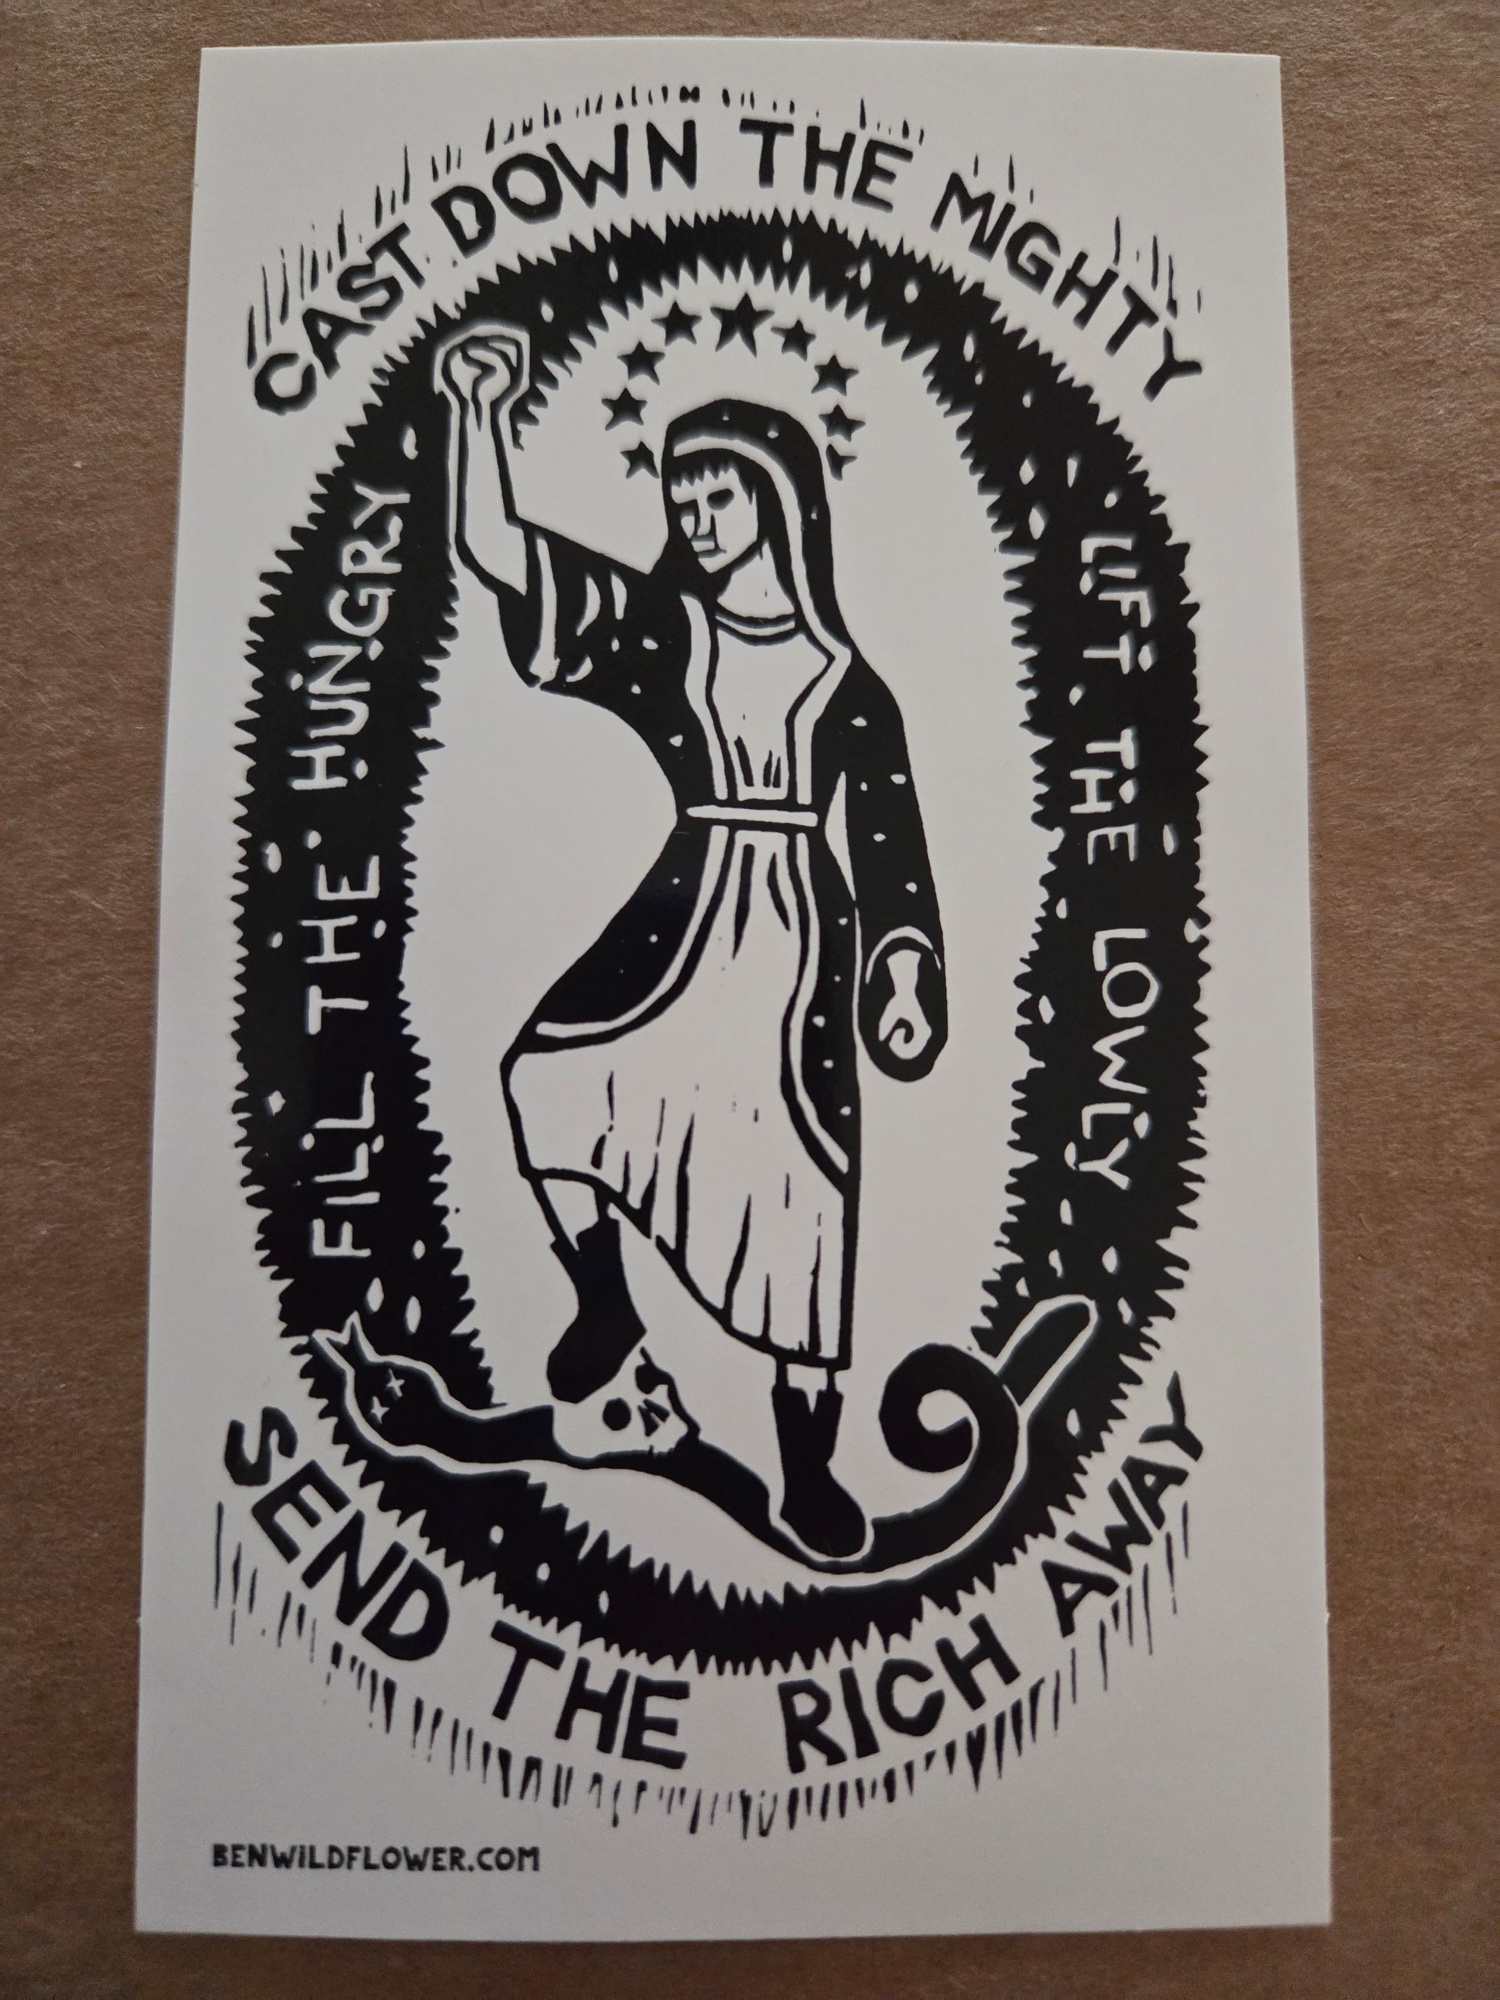 CAST DOWN THE MIGHTY
LIFT THE LOWLY
FILL THE HUNGRY
SEND THE RICH AWAY
BENWILDFLOWER.COM